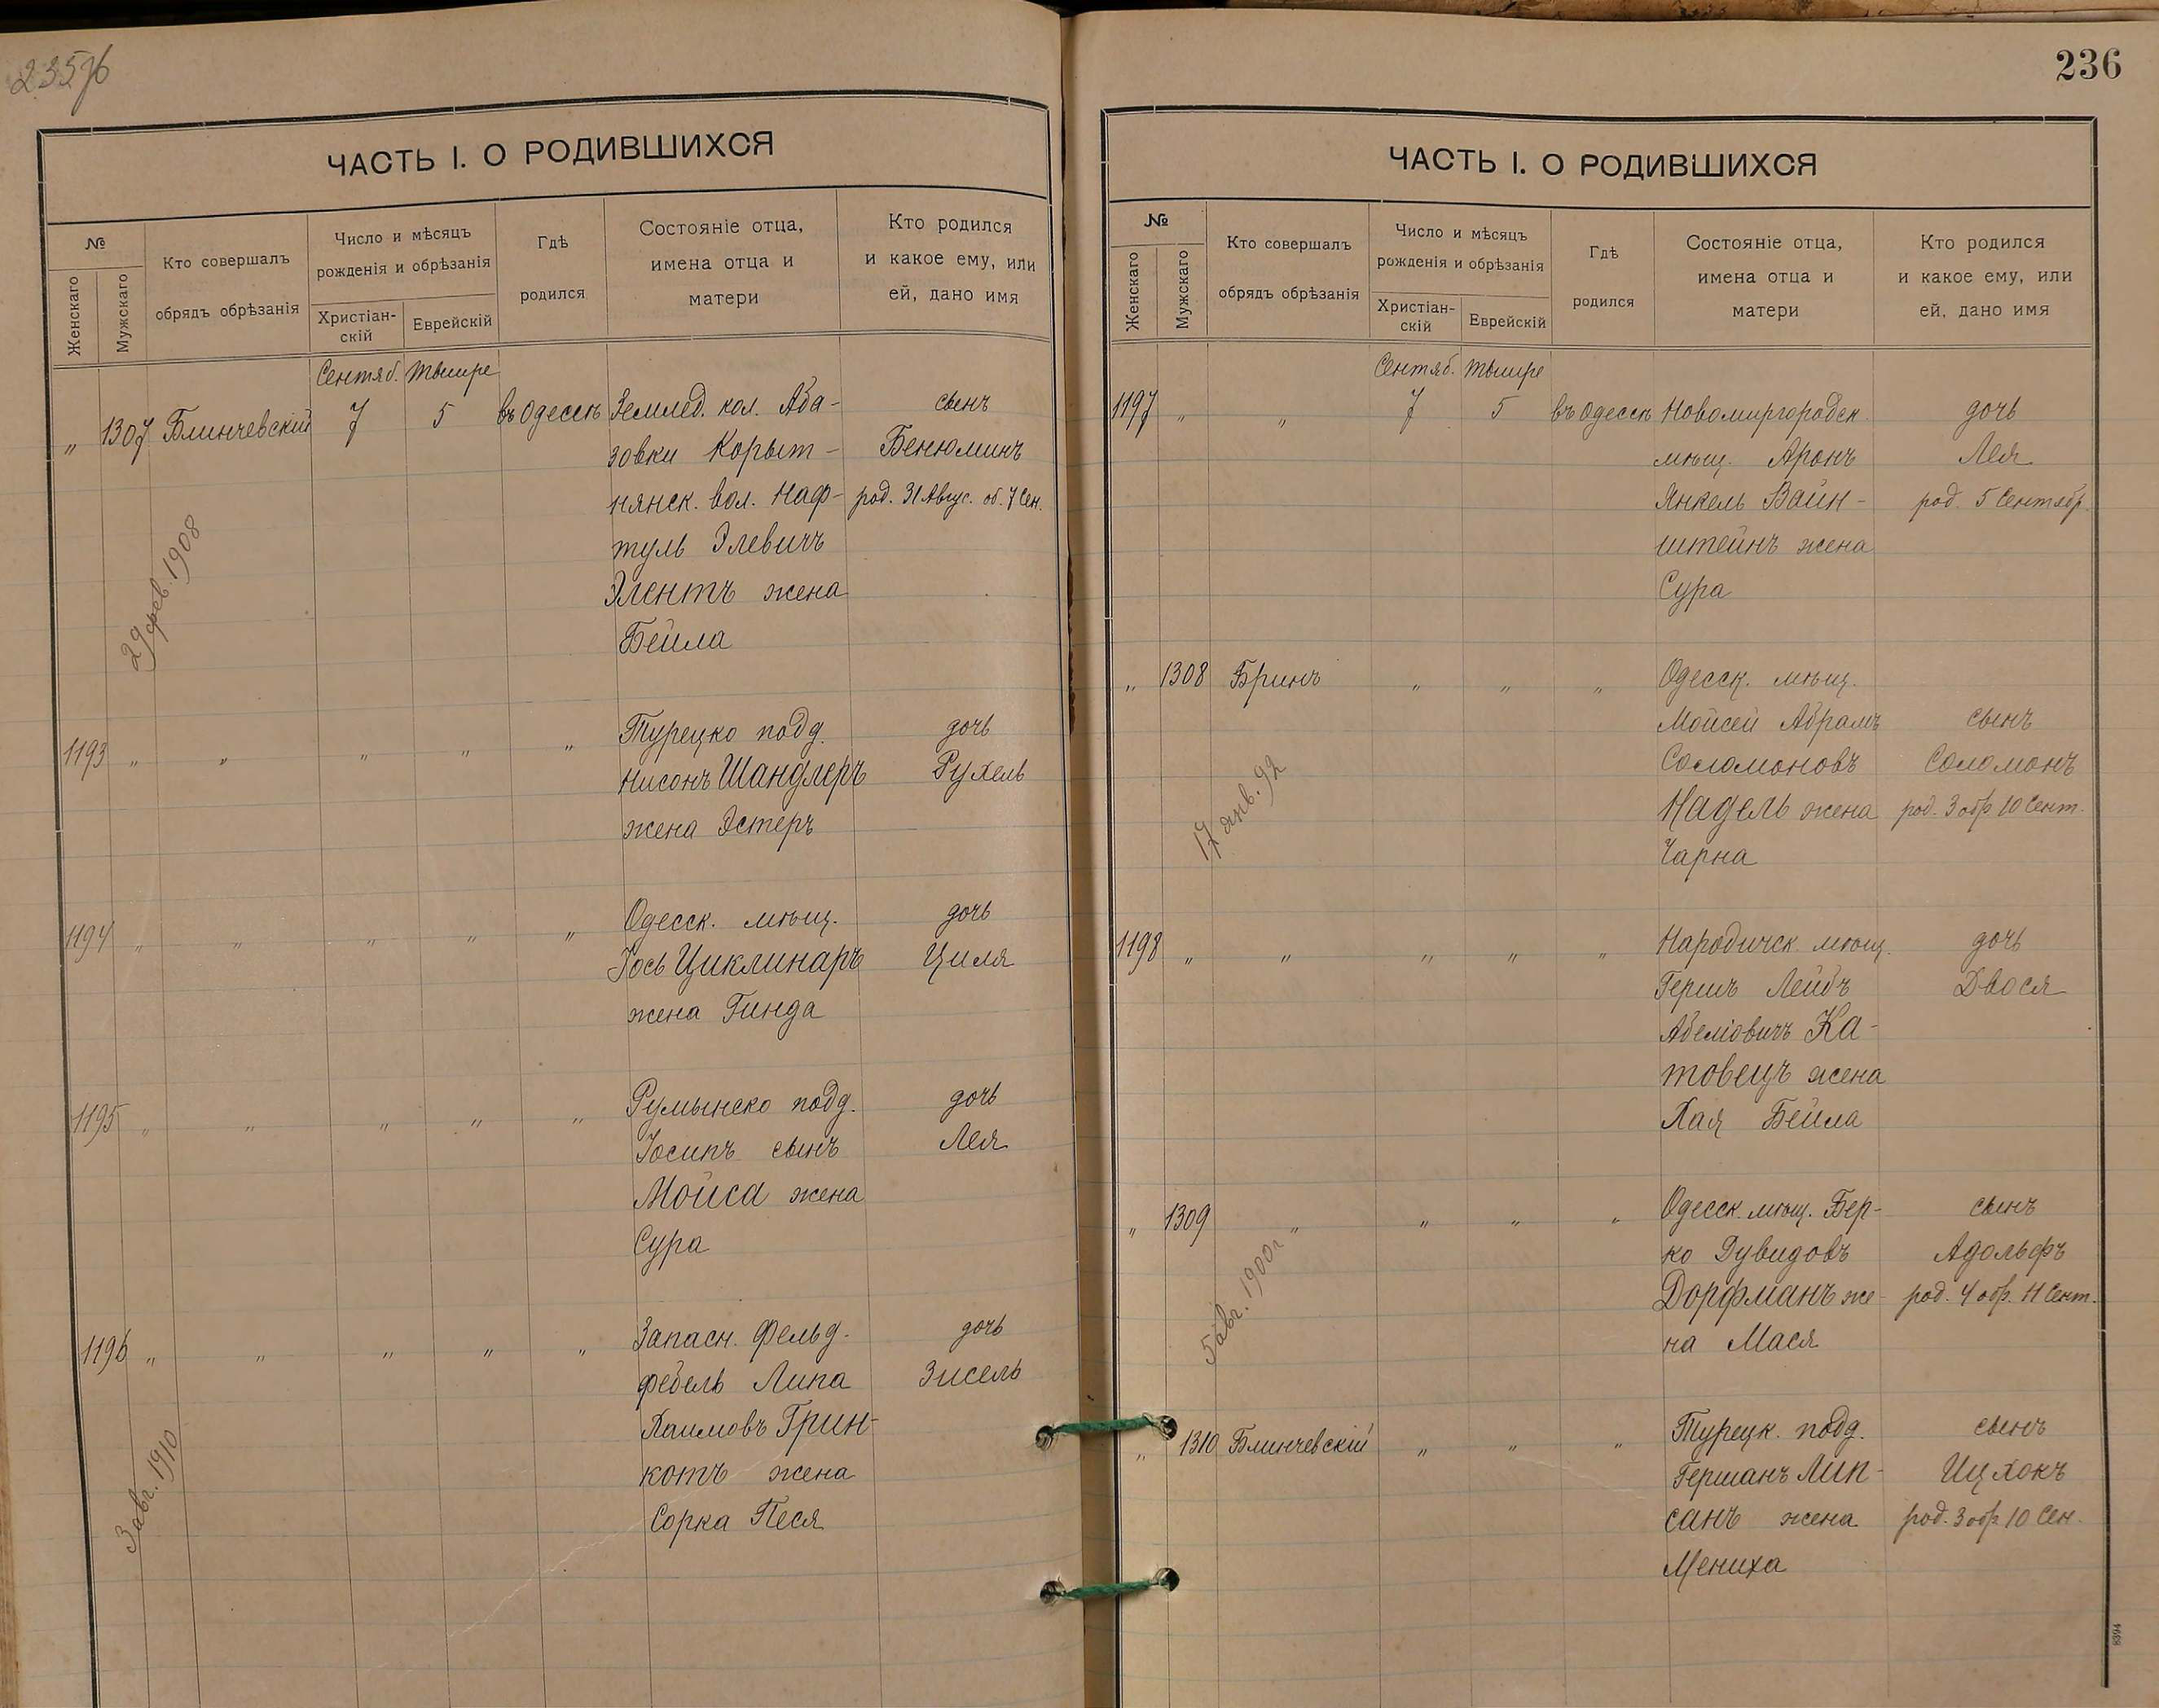 235 об
ЧАСТЬ I. О РОДИВШИХСЯ
№
Женскаго
Мужскаго
Кто совершалъ
обрядъ обрѣзанія
Число и мѣсяцъ
рожденія и обрѣзанія
Христіан-
скій
Еврейскій
Гдѣ
родился
Состояніе отца,
имена отца и
матери
Кто родился
и какое ему, или
ей, дано имя
Сентяб. Тышре
„ 1307 Блинчевскій 7 5 въ Одессѣ Землед. кол. Аба- сынъ
зовки Корыт- Бенюминъ
нянск. вол. Наф- род. 31 Авгус. об. 7 Сен.
туль Элевичъ
Элентъ жена
Бейла
29 фев. 1908
1193 „ „ „ „ „ Турецко подд. дочь
Нисонъ Шандлеръ Рухель
жена Эстеръ
1194 „ „ „ „ „ Одесск. мѣщ. дочь
Іось Циклинаръ Циля
жена Гинда
1195 „ „ „ „ „ Румынско подд. дочь
Іосипъ сынъ Лея
Мойса жена
Сура
1196 „ „ „ „ „ Запасн. Фельд- дочь
фебель Липа Зисель
Хаимовъ Грин-
котъ жена
Сорка Песя
3 авг. 1910
236
ЧАСТЬ I. О РОДИВШИХСЯ
№
Женскаго
Мужскаго
Кто совершалъ
обрядъ обрѣзанія
Число и мѣсяцъ
рожденія и обрѣзанія
Христіан-
скій
Еврейскій
Гдѣ
родился
Состояніе отца,
имена отца и
матери
Кто родился
и какое ему, или
ей, дано имя
Сентяб. Тышре
1197 „ „ 7 5 въ Одессѣ Новомиргородск. дочь
мѣщ. Аронъ Лея
Янкель Вайн- род. 5 Сентябр.
штейнъ жена
Сура
„ 1308 Бринъ „ „ „ Одесск. мѣщ.
Мойсей Абрамъ сынъ
Соломоновъ Соломонъ
Надель жена род. 3 обр. 10 Сент.
Чарна
17 янв. 92
1198 „ „ „ „ „ Народичск. мѣщ. дочь
Гершъ Лейбъ Двося
Абеліовичъ Ка-
товецъ жена
Хая Бейла
„ 1309 „ „ „ „ Одесск. мѣщ. Бер- сынъ
ко Дувидовъ Адольфъ
Дорфманъ же- род. 4 обр. 11 Сент.
на Мася
5 авг. 1900 г.
„ 1310 Блинчевскій „ „ „ Турецк. подд. сынъ
Германъ Лип- Ицхокъ
санъ жена род. 3 обр. 10 Сен.
Мениха
8394